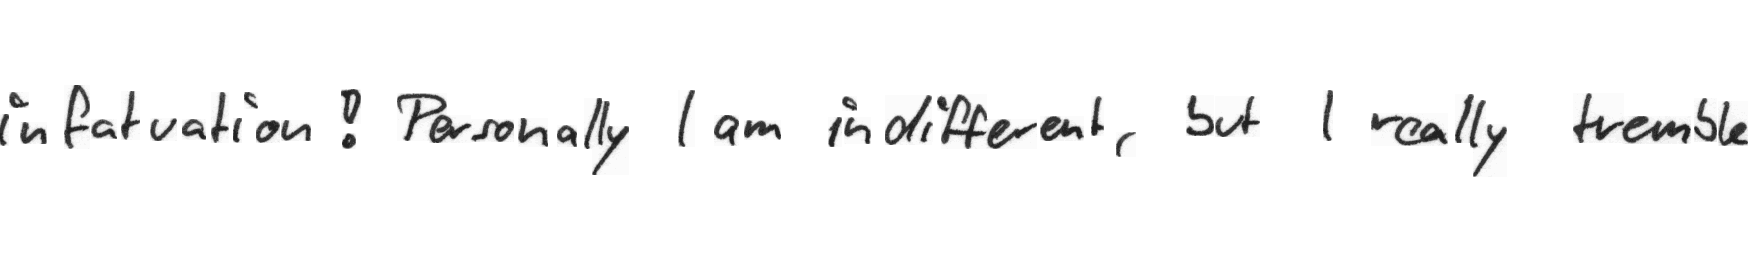 infatuation! Personally I am indifferent, but I really tremble